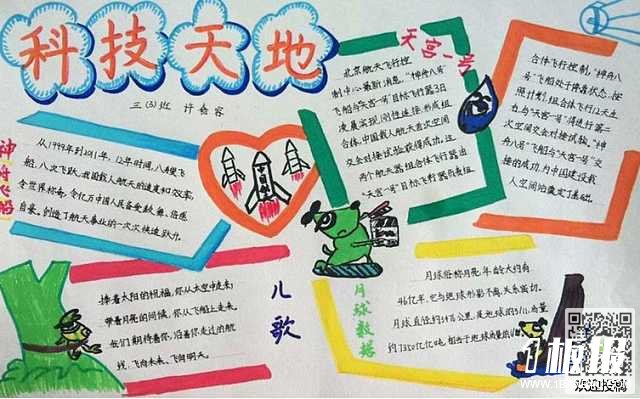 科技天地
三(3)班 许嘉容
神舟飞船
从1999年到2011年,12年时间,八艘飞
船,八次飞跃,我国载人航天的速度和效率,
令世界称奇,令亿万中国人民备受鼓舞、倍感
自豪。创造了航天事业的一次次快速跃升。
天宫一号
北京航天飞行控
制中心最新消息,“神舟八号”
飞船与“天宫一号”目标飞行器3日
凌晨实现刚性连接,形成组
合体,中国载人航天首次空间
交会对接试验获得成功。这
两个航天器组合体飞行器由
“天宫一号”目标飞行器负责组
合体飞行控制,“神舟八
号”飞船处于停靠状态。按
照计划,组合体飞行12天左
右与“天宫一号”将进行第二
次空间交会对接试验。“神
舟八号”飞船与“天宫一号”交
接的成功,为中国建设载
人空间站奠定了基础。
中国航天
儿歌
捧着太阳的祝福,你从太空中走来;
带着月亮的问候,你从飞船上走来。
我们期待着你,沿着你走过的航
线,飞向未来、飞向明天。
月球数据
月球俗称月亮,年龄大约有
46亿年,它与地球形影不离,关系密切。
月球直径约3476公里,是地球的3/11,质量
约7350亿亿吨,相当于地球质量的
板报
欢迎投稿